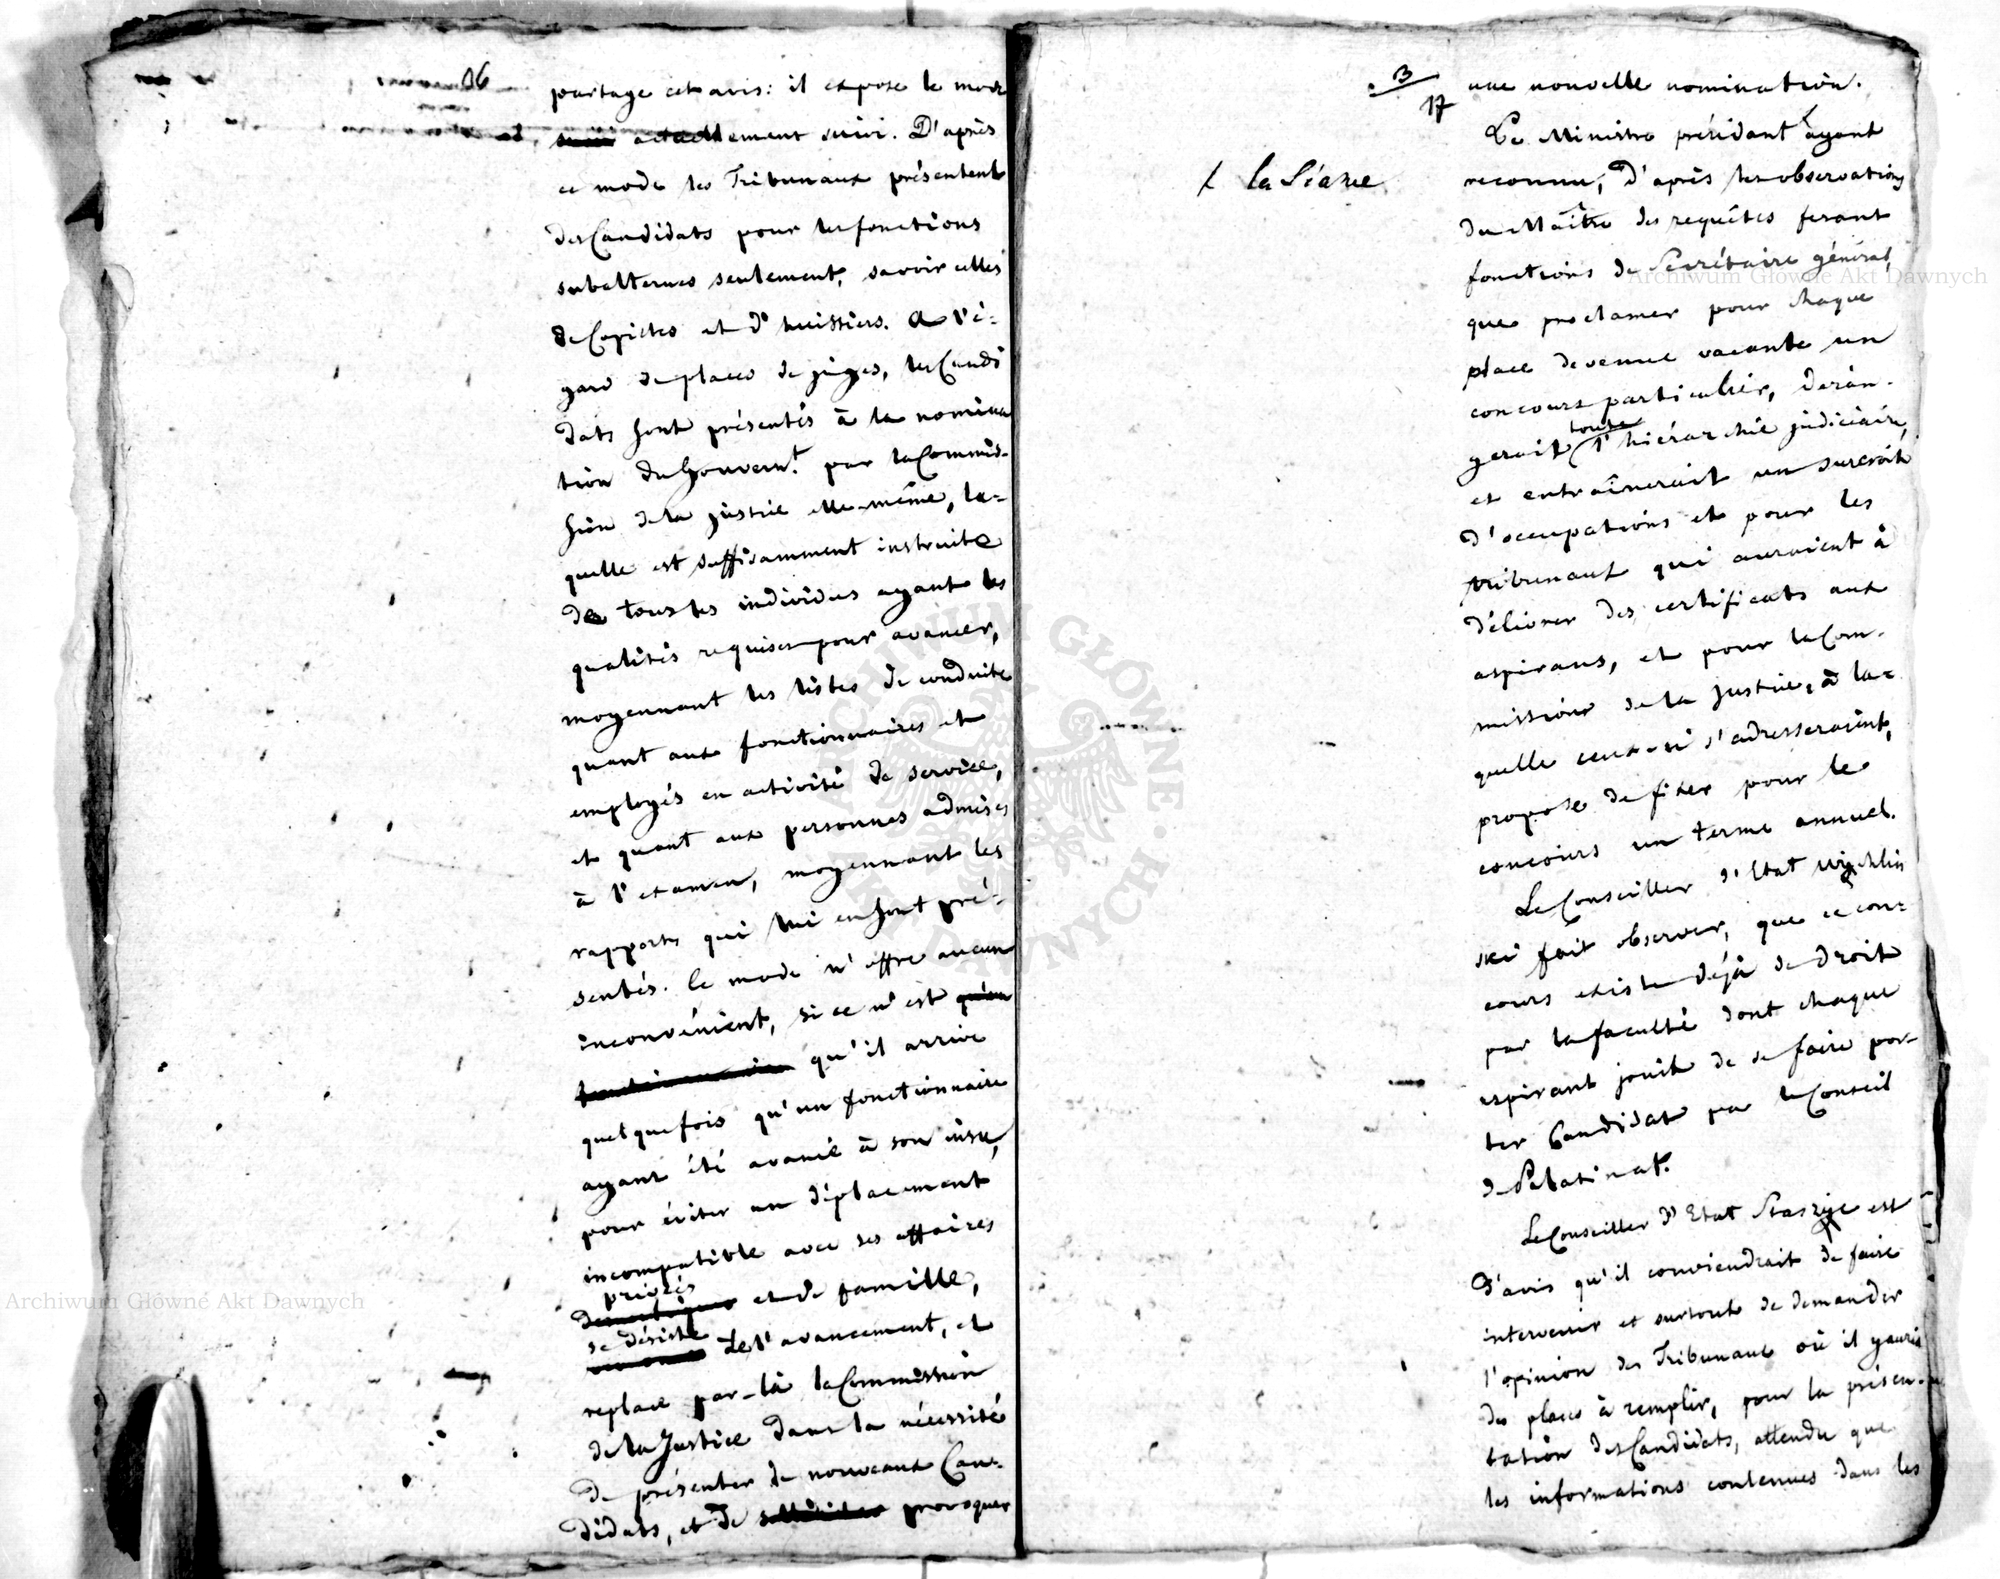 16
partage cet avis: il expose le mode
actuellement suivi. D'après
ce mode les Tribunaux présentent
des Candidats pour les fonctions
subalternes seulement, savoir celles
de Copistes et d'huissiers. A l'é-
gard de places de juges, les Candi
dats sont présentés à la nomina
tion du Gouvernt. par la Commis-
sion de la justice elle-même, la-
quelle est suffisamment instruite
de tous les individus ayant les
qualités requises pour avancer,
moyennant les listes de conduite
quant aux fonctionnaires et
employés en activité de service,
et quant aux personnes admises
à l'examen, moyennant les
rapports qui lui en sont pré-
sentés. Ce mode n'offre aucun
inconvénient, si ce n'est qu'un
qu'il arrive
quelquefois qu'un fonctionnaire
ayant été avancé à son insu,
pour éviter un déplacement
incompatible avec ses affaires
privées
et de famille,
se désiste
de l'avancement, et
replace par-là la Commission
de la Justice dans la nécessité
de présenter de nouveaux Can-
didats, et de solliciter provoquer
3
17
une nouvelle nomination.
Le Ministre présidant ayant
⌊ la Séance
reconnu, d'après les observations
du Maître des requêtes fesant
fonctions de Secrétaire général,
que proclamer pour chaque
place devenue vacante un
concours particulier, déran-
toute
gerait l'hiérarchie judiciaire,
et entraînerait un surcroit
d'occupations et pour les
tribunaux qui auraient à
délivrer des certificats aux
aspirans, et pour la Com-
mission de la justice, à la-
quelle ceux-ci s'adresseraient,
propose de fixer pour le
concours un terme annuel.
Le Conseiller d'Etat Wychlin
ski fait observer, que ce con-
cours existe déjà de droit
par la faculté dont chaque
aspirant jouit de se faire por-
ter Candidat par le Conseil
de Palatinat.
Le Conseiller d'Etat Staszyc est
d'avis qu'il conviendrait de faire
intervenir et surtout de demander
l'opinion des Tribunaux où il y aurait
des places à remplir, pour la présen-
tation des Candidats, attendu que
les informations contenues dans les
Archiwum Główne Akt Dawnych
Archiwum Główne Akt Dawnych
ARCHIWUM GŁÓWNE AKT DAWNYCH